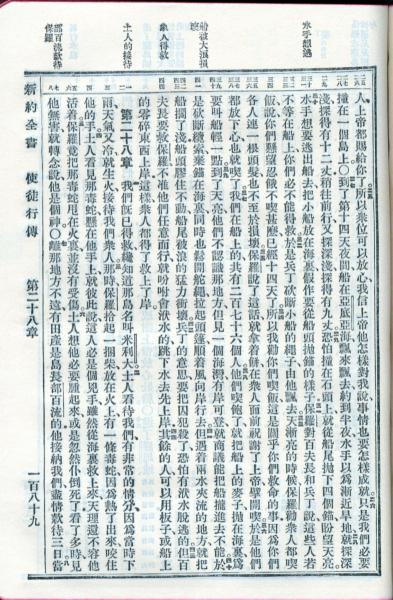 水手想逃
船被大浪損壞
衆人得救
土人的接待
部百流款待保羅
人上帝都賜給你了所以衆位可以放心我信上帝他怎樣對我說事情也要怎樣成就只是我們必要
撞在一個島上〇到了第十四天夜間船在亞底亞海飄來飄去約到半夜水手以爲漸近旱地就探深
淺探得有十二丈稍往前行又探深淺探得有九丈恐怕撞在石頭上就從船尾拋下四個錨盼望天亮
水手想要逃出船去把小船放在海裏假作要從船頭拋錨的樣子保羅對百夫長和兵丁說這些人若
不等在船上你們必不能得救於是兵丁砍斷小船的繩子由他飄去天漸亮的時候保羅勸衆人都喫
飯說你們懸望忍餓不喫甚麼已經十四天了所以我勸你們喫飯這是關乎你們救命的事因爲你們
各人連一根頭髮也不至於損壞保羅說了這話就拿着餅在衆人面前祝謝了上帝擘開喫於是他們
都放下心也就喫了我們在船上的共有二百七十六個人他們喫飽了就把船上的麥子拋在海裏爲
要叫船輕一點到了天亮他們不認識那地方但見一個海灣有岸可登就商議能把船攏進去不能於
是砍斷纜索棄錨在海裏同時也鬆開舵繩拉起頭篷順着風向岸行去但遇着兩水夾流的地方就把
船擱了淺船頭膠住不動船尾被浪的猛力衝壞兵丁的意思要把囚犯殺了恐怕有洑水脫逃的但百
夫長要救保羅不准他們任意而行就吩咐會洑水的跳下水去先上岸其餘的人可以用板子或船上
的零碎東西上岸這樣衆人都得了救上了岸
第二十八章 我們既已得救纔知道那島名叫米利大土人看待我們有非常的情分因爲當時下
雨天氣又冷就生火接待我們衆人那時保羅拾起一捆柴放在火上有一條毒蛇因爲熱了出來咬住
他的手土人看見那毒蛇懸在他手上就彼此說這人必是個兇手雖然從海裏救上來天理還不容他
活着保羅竟把那毒蛇甩在火裏並沒有受傷土人想他必要腫起來或是忽然仆倒死了看了多時見
他無害就轉念說他是個神〇離那地方不遠有田產是島長部百流的他接納我們盡情款待三日當
新約全書 使徒行傳 第二十八章 一百八十九